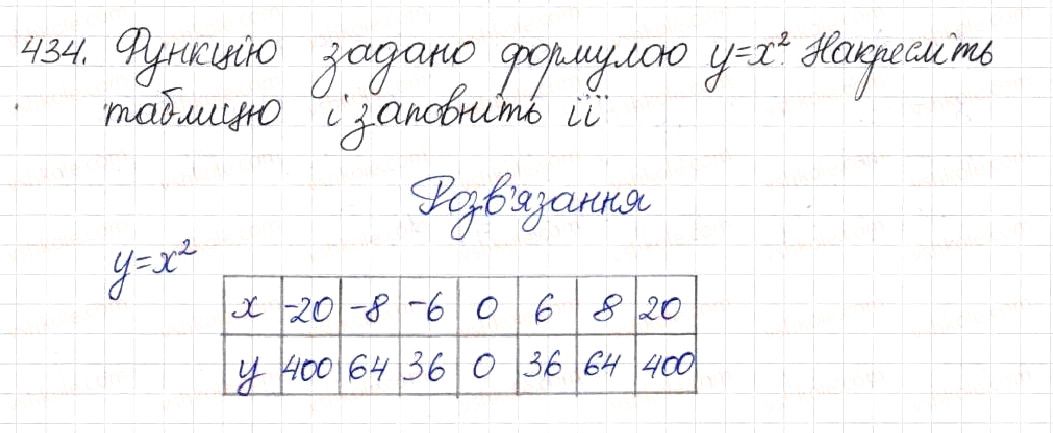 434. Функцію задано формулою y=x². Накресліть
таблицю і заповніть її
Розв'язання
y=x²
x -20 -8 -6 0 6 8 20
y 400 64 36 0 36 64 400